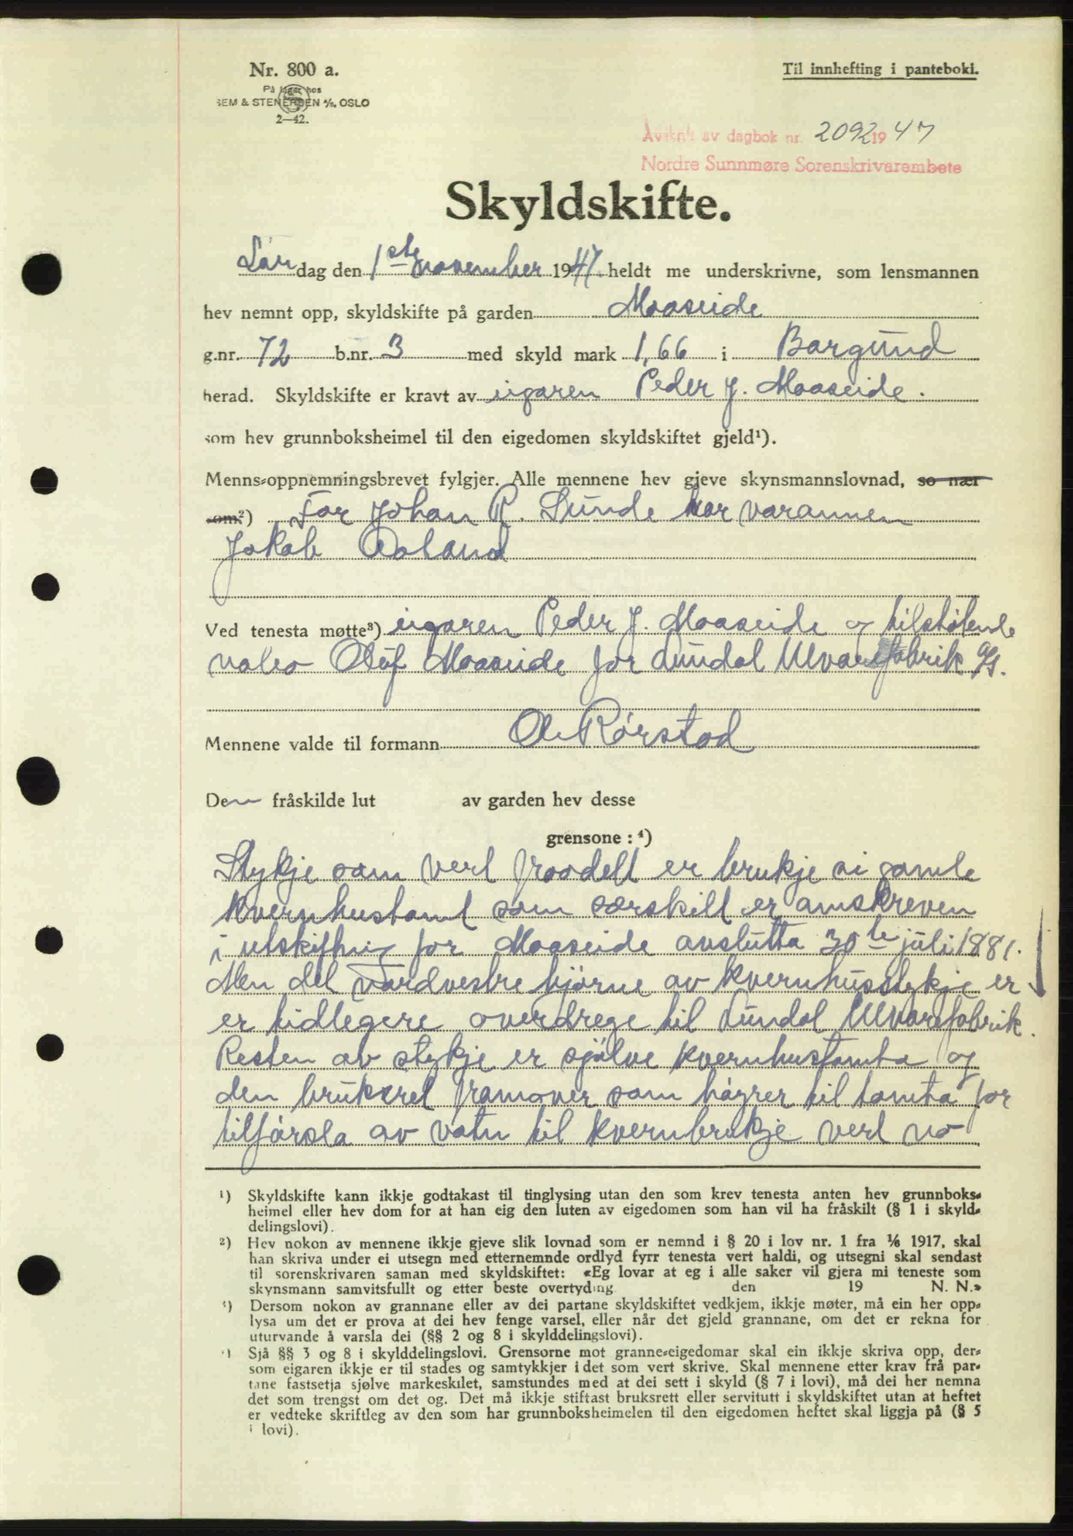 Nr. 800 a.
Til innhefting i panteboki.
På lager hos
SEM & STENERSEN A/S, OSLO
2—42.
Avskrift av dagbok nr. 2092 1947
Nordre Sunnmøre Sorenskrivarembete
Skyldskifte.
Lør dag den 1ste november 1947. heldt me underskrivne, som lensmannen
hev nemnt opp, skyldskifte på garden Moaseide
g.nr. 72 b.nr. 3 med skyld mark 1,66 i Borgund
herad. Skyldskifte er kravt av eigaren Peder J. Moaseide.
som hev grunnboksheimel til den eigedomen skyldskiftet gjeld¹).
Menns-oppnemningsbrevet fylgjer. Alle mennene hev gjeve skynsmannslovnad, so nær
som²) For Johan R. Sunde har varamen
Jakob Aoland
Ved tenesta møtte³) eigaren Peder J. Moaseide og tilstøtende
nabo Oluf Moaseide for Lundal Ulvarefabrik A/S.
Mennene valde til formann Ole Rørstad
Den fråskilde lut av garden hev desse
grensone : ⁴)
Stykje som vert fraadelt er brukje ai gamle
kvernhustomt som særskilt er omskreven
i utskiftning for Moaseide avslutta 30te juli 1881.
Men det nordvestre hjørne av kvernhusstykje er
er tidlegere overdrege til Lundal Ulvarefabrik.
Resten av stykje er sjølve kvernhustomta og
den brukeret framover som høyrer til tomta for
tilførsla av vatn til kvernbrukje vert no
¹) Skyldskifte kann ikkje godtakast til tinglysing utan den som krev tenesta anten hev grunnboks-
heimel eller hev dom for at han eig den luten av eigedomen som han vil ha fråskilt (§ 1 i skyld-
delingslovi).
²) Hev nokon av mennene ikkje gjeve slik lovnad som er nemnd i § 20 i lov nr. 1 fra ⅙ 1917, skal
han skriva under ei utsegn med etternemnde ordlyd fyrr tenesta vert haldi, og utsegni skal sendast
til sorenskrivaren saman med skyldskiftet: «Eg lovar at eg i alle saker vil gjera mi teneste som
skynsmann samvitsfullt og etter beste overtyding den 19 N. N.»
³) Dersom nokon av grannane eller av dei partane skyldskiftet vedkjem, ikkje møter, må ein her opp-
lysa um det er prova at dei hev fenge varsel, eller når det gjeld grannane, om det er rekna for
uturvande å varsla dei (§§ 2 og 8 i skylddelingslovi).
⁴) Sjå §§ 3 og 8 i skylddelingslovi. Grensorne mot granne-eigedomar skal ein ikkje skriva opp, der-
som eigaren ikkje er til stades og samtykkjer i det som vert skrive. Skal mennene etter krav frå par-
tane fastsetja sjølve markeskilet, samstundes med at dei sett i skyld (§ 7 i lovi), må dei her nemna
det som trengst om det og. Det må ikkje stiftast bruksrett eller servitutt i skyldskiftet utan at heftet
er vedteke skriftleg av den som har grunnboksheimelen til den eigedomen heftet skal liggja på (§ 5
i lovi).